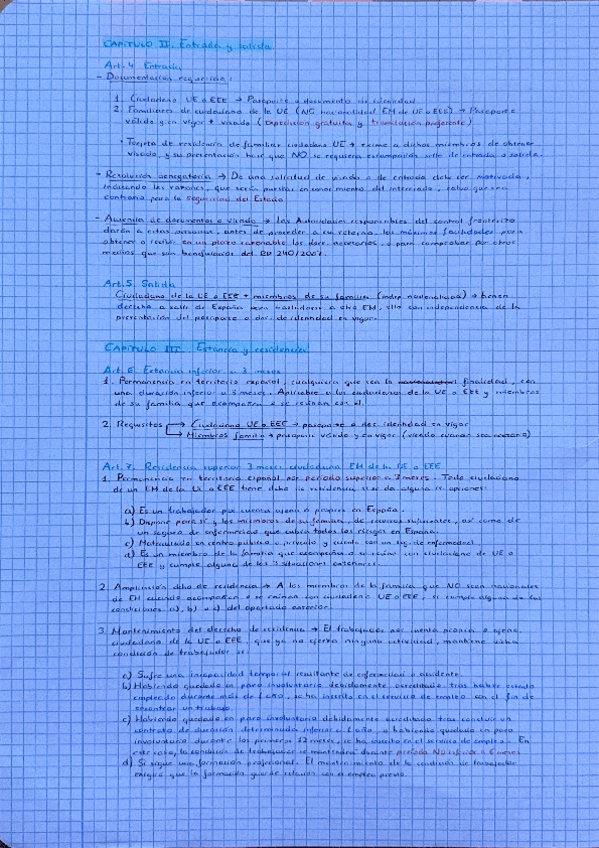 CAPÍTULO II. Entrada y salida
Art. 4 Entrada
- Documentación requerida:
1. Ciudadano UE o EEE → Pasaporte o documento de identidad
2. Familiares de ciudadano de la UE (NO nacionalidad EM de UE o EEE) → Pasaporte
válido y en vigor + visado (expedición gratuita y tramitación preferente)
· Tarjeta de residencia de familiar ciudadano UE → exime a dichos miembros de obtener
visado, y su presentación hará que NO se requiera estampación sello de entrada o salida.
- Resolución denegatoria → De una solicitud de visado o de entrada debe ser motivada,
indicando las razones, que serán puestas en conocimiento del interesado, salvo que sea
contrario para la seguridad del Estado
- Ausencia de documentos o visado → Las Autoridades responsables del control fronterizo
darán a estas personas, antes de proceder a su retorno, las máximas facilidades para
obtener o recibir en un plazo razonable los doc. necesarios, o para comprobar por otros
medios que son beneficiarios del RD 240/2007.
Art. 5. Salida
Ciudadano de la UE o EEE + miembros de su familia (indep. nacionalidad) → tienen
derecho a salir de España para trasladarse a otro EM, ello con independencia de la
presentación del pasaporte o doc. de identidad en vigor.
CAPÍTULO III. Estancia y residencia
Art. 6. Estancia inferior a 3 meses
1. Permanencia en territorio español, cualquiera que sea la finalidad, con
una duración inferior a 3 meses. Aplicable a los ciudadanos de la UE o EEE y miembros
de su familia que acompañen o se reúnan con él.
2. Requisitos → Ciudadano UE o EEE → pasaporte o doc. identidad en vigor
→ Miembros familia → pasaporte válido y en vigor (visado cuando sea necesario)
Art. 7. Residencia superior 3 meses ciudadano EM de la UE o EEE
1. Permanencia en territorio español por período superior a 3 meses. Todo ciudadano
de un EM de la UE o EEE tiene dcho de residencia si se da alguna de opciones:
a) Es un trabajador por cuenta ajena o propia en España.
b) Dispone para sí y los miembros de su familia, de recursos suficientes, así como de
un seguro de enfermedad que cubra todos los riesgos en España.
c) Matriculado en centro público o privado y cuenta con un seg. de enfermedad.
d) Es un miembro de la familia que acompaña o se reúne con ciudadano de UE o
EEE y cumple alguna de las 3 situaciones anteriores.
2. Ampliación dcho de residencia → A los miembros de la familia que NO sean nacionales
de EM cuando acompañen o se reúnan con ciudadano UE o EEE, si cumple alguna de las
condiciones a), b) o c) del apartado anterior.
3. Mantenimiento del derecho de residencia → El trabajador por cuenta propia o ajena,
ciudadano de la UE o EEE, que ya no ejerza ninguna actividad, mantiene
condición de trabajador si:
a) Sufre una incapacidad temporal resultante de enfermedad o accidente.
b) Habiendo quedado en paro involuntario debidamente acreditado, tras haber estado
empleado durante más de 1 año, se ha inscrito en el servicio de empleo con el fin de
encontrar un trabajo.
c) Habiendo quedado en paro involuntario debidamente acreditado tras concluir un
contrato de duración determinada inferior 1 año, o habiendo quedado en paro
involuntario durante los primeros 12 meses, se ha inscrito en el servicio de empleo. En
este caso, la condición de trabajador se mantendrá durante período NO inferior a 6 meses
d) Si sigue una formación profesional. El mantenimiento de la condición de trabajador
exigirá que la formación guarde relación con el empleo previo.